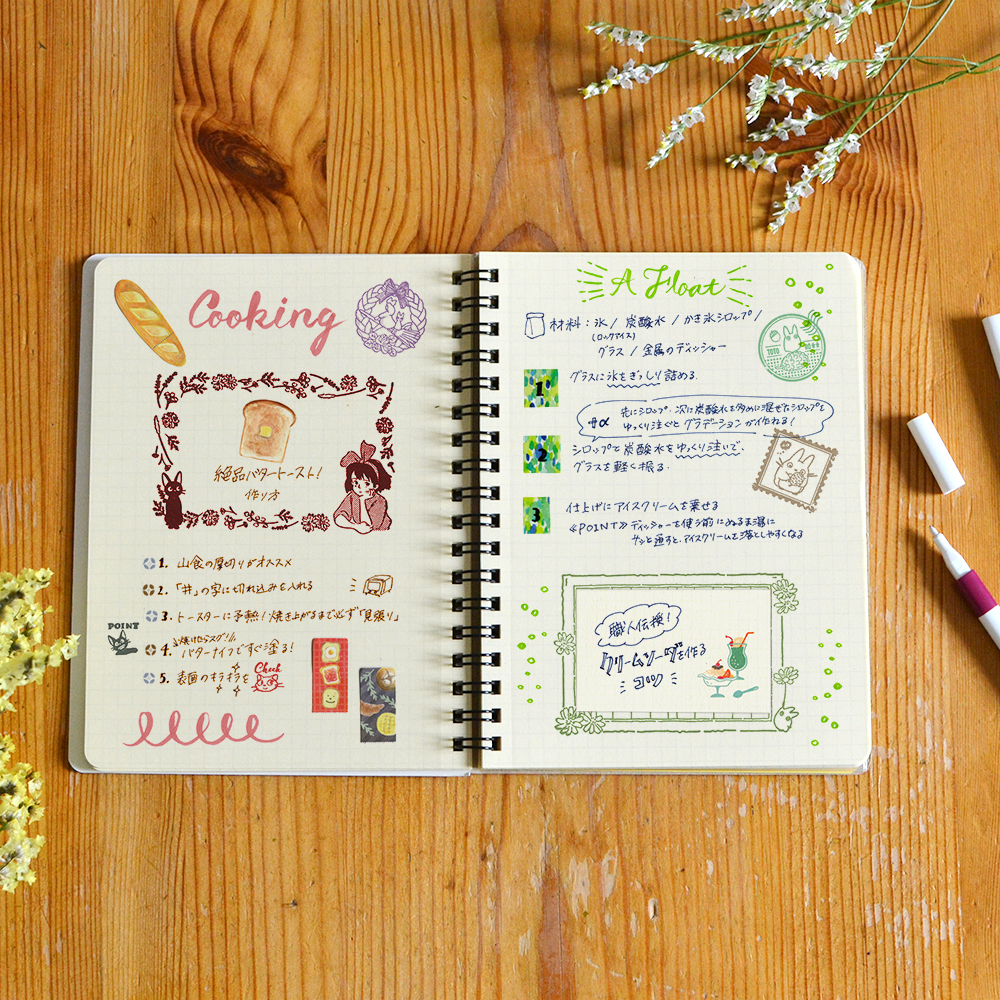 Cooking
絶品バタートースト!
作り方
1. 山食の厚切りがオススメ
2. 「井」の字に切れ込みを入れる
3. トースターに予熱!焼き上がるまで必ず「見張り」
POINT
焼けたらスグ!
4. バターナイフですぐ塗る!
5. 表面のキラキラを Check
A Float
材料:氷 / 炭酸水 / かき氷シロップ /
(ロックアイス)
グラス / 金属のディッシャー
1 グラスに氷をぎっしり詰める.
+α 先にシロップ、次に炭酸水を多めに混ぜたシロップを
ゆっくり注ぐとグラデーションが作れる!
2 シロップと炭酸水をゆっくり注いで、
グラスを軽く振る.
3 仕上げにアイスクリームを乗せる
≪POINT≫ ディッシャーを使う前にぬるま湯に
サッと通すと、アイスクリームを落としやすくなる
職人伝授!
クリームソーダを作る
コツ